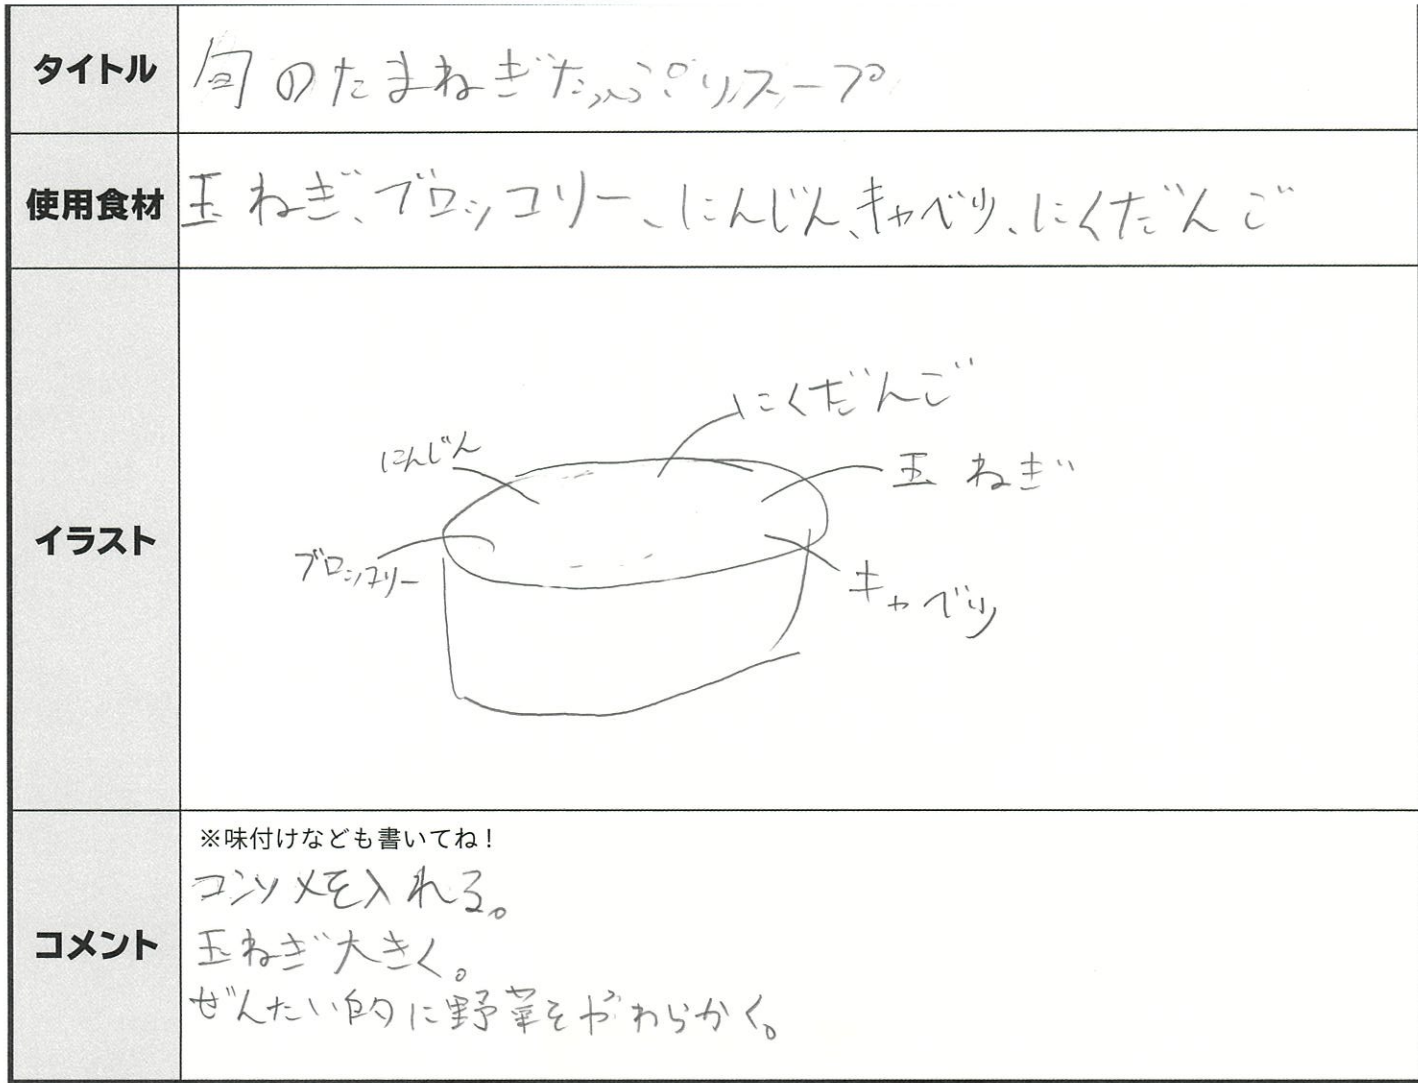 タイトル
旬のたまねぎたっぷりスープ
使用食材
玉ねぎ、ブロッコリー、にんじん、キャベツ、にくだんご
イラスト
にくだんご
にんじん
玉ねぎ
ブロッコリー
キャベツ
コメント
※味付けなども書いてね！
コンソメを入れる。
玉ねぎ大きく。
ぜんたい的に野菜をやわらかく。